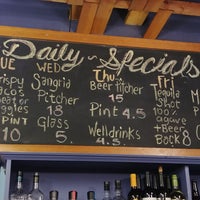 Daily ~ Specials
UE
rispy
acos
eat or
ggies
PINT
10
WED
Sangria
Pitcher
18
Glass
5.
Thu
Beer Pitcher
15
Pint 4.5
Welldrinks
4.5.
Fri
Tequila
Shot
100%
+Beer
Back 8
M